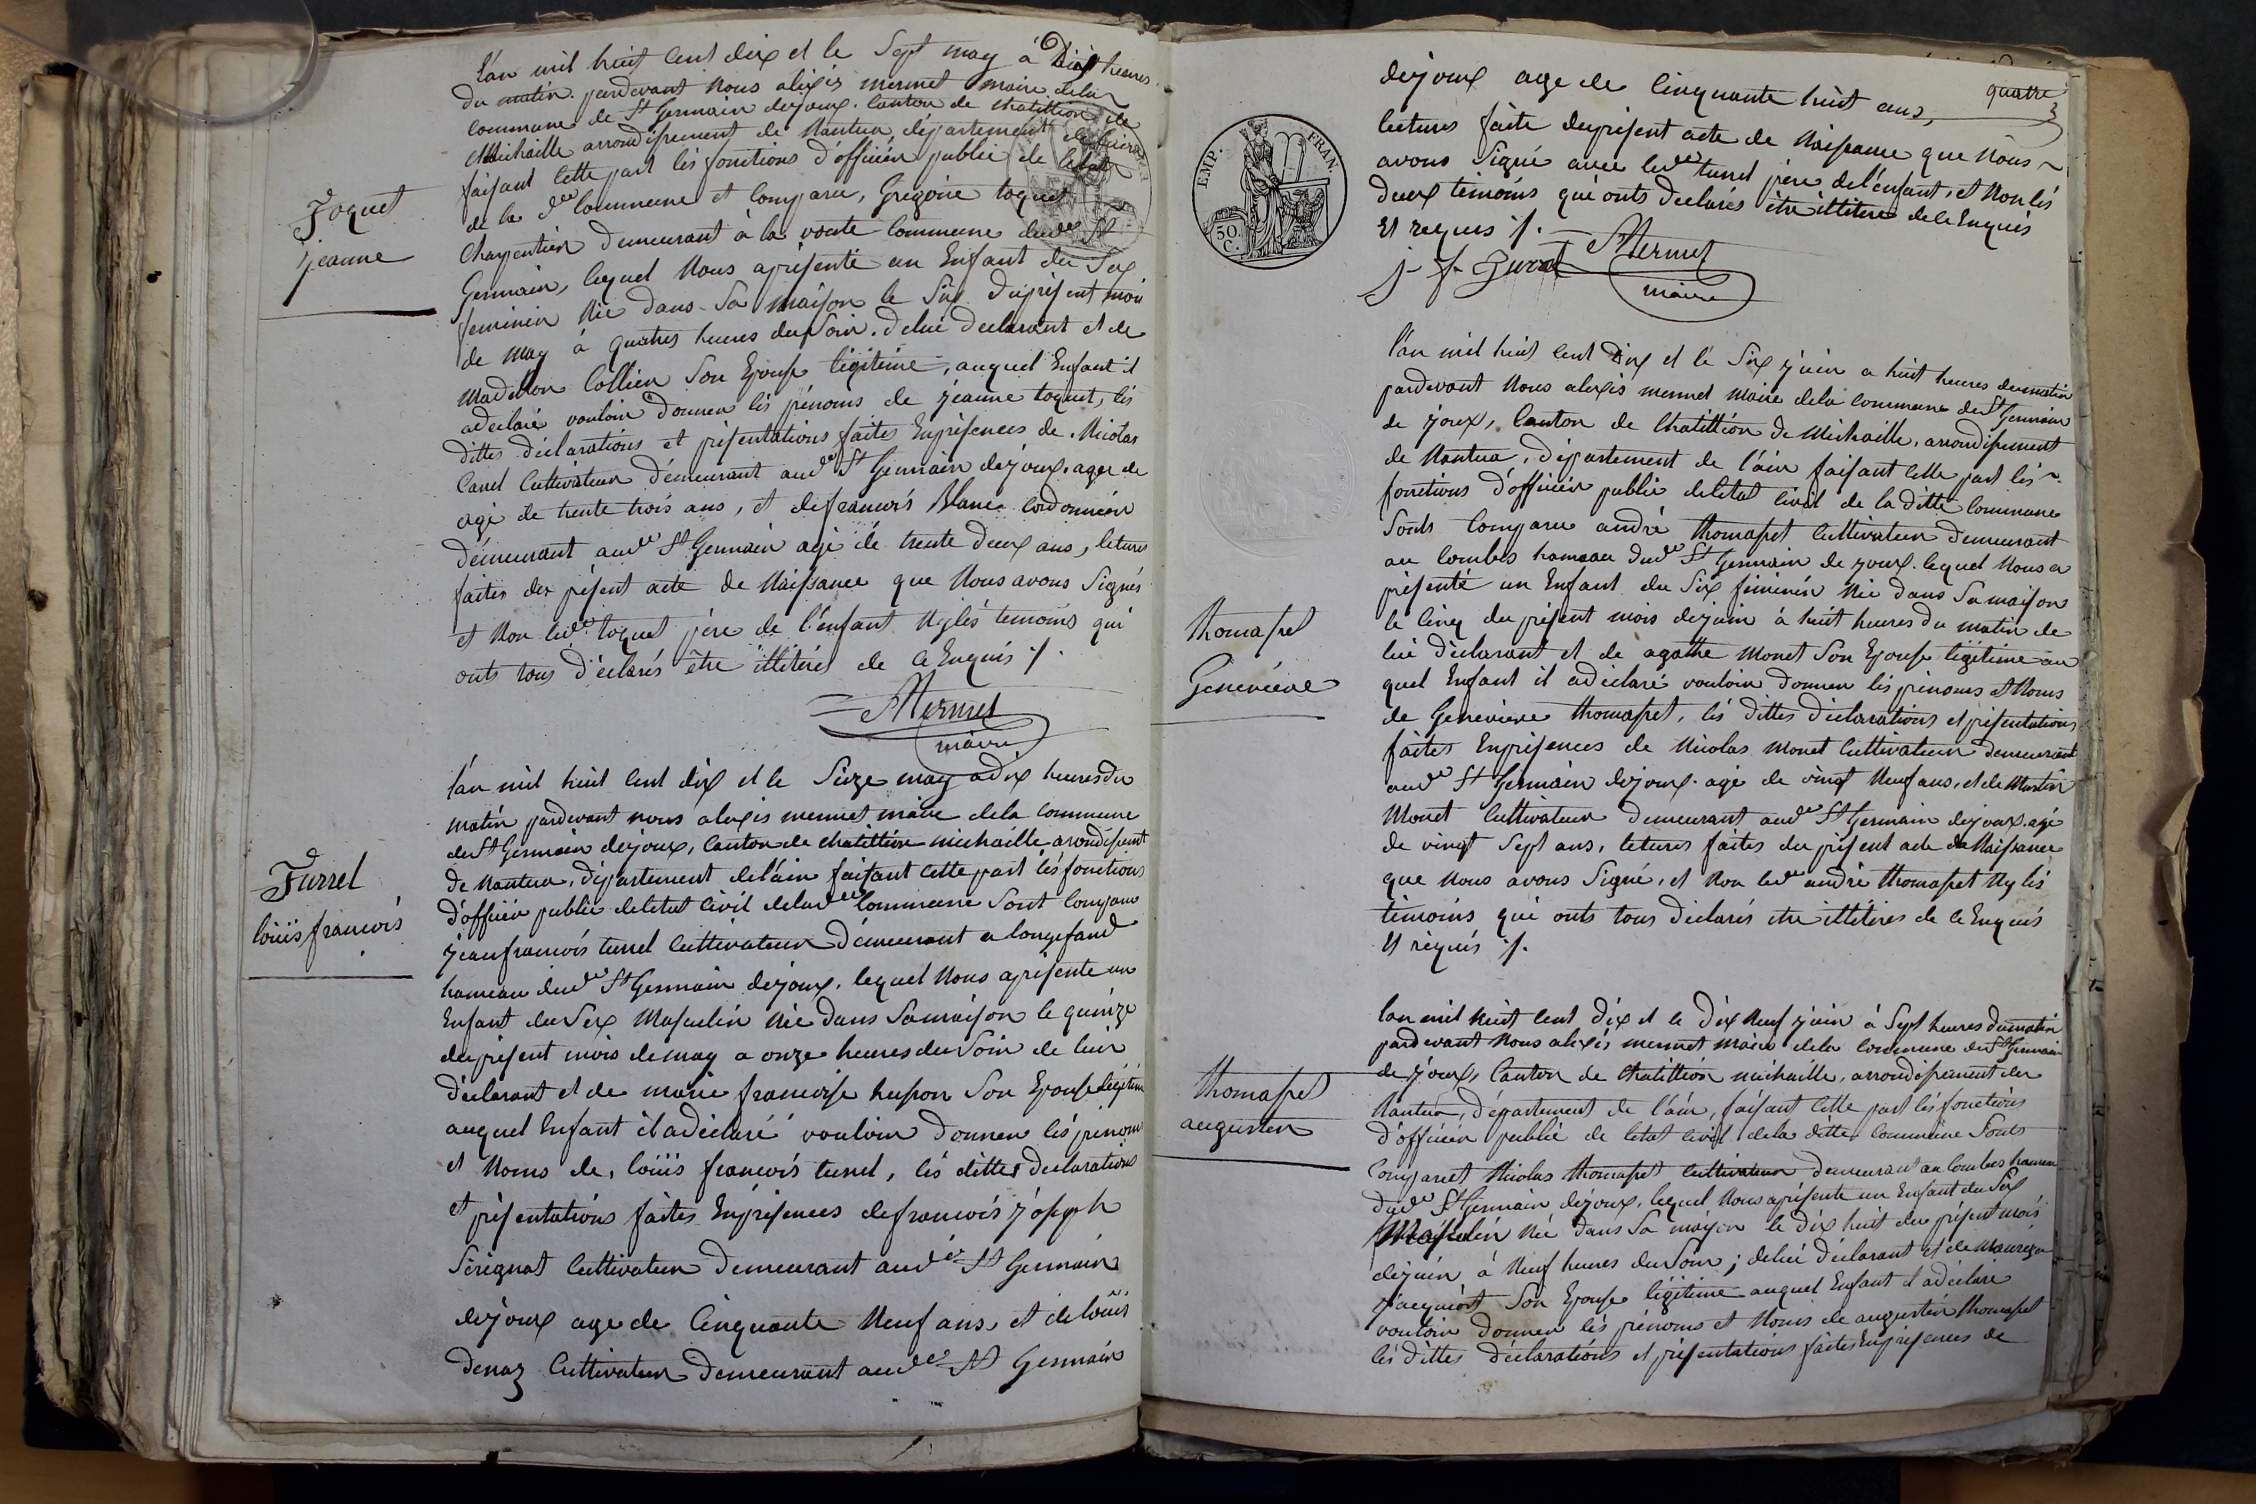 L'an mil huit cent dix et le Sept may à Dix heures
du matin. pardevant nous alexis mermet maire de la
commune de St Germain dejoux. Canton de chatillion de
Michaille arrondissement de Nantua, département de l'ain
faisant cette part les fonctions d'officier public de l'etat
de la de Commune et Comparu, Grégoire toquet
Toquet
jeanne
Charpentier demeurant à la voute Commune dude St
Germain, lequel Nous apresenté un Enfant du Sex
feminin Née dans Sa maison le Six du présent mois
de May à quatres heures du Soir. de lui declarant et de
Madellon Collien Son Epouse légitime, auquel Enfant il
adeclaré vouloir donner lés prénoms de jéanne toquet, lés
dittes déclarations et présentations faites Enprésences de Nicolas
Canel Cultivateur démeurant aude St Germain dejoux. ager de
agé de trente trois ans, et de francois Blanc Cordonnier
démeurant aude St Germain agé de trente deux ans, letures
faites du présent acte de Naissance que Nous avons Signés
et Non lede toquet pére de l'enfant Ny lés temoins qui
onts tous déclarés être illitérés de ce Enquis ./.
AMermet
maire
L'an mil huit cent dix et le Sieze may a dix heures du
matin pardevant nous alexis mermet maire de la commune
de St Germain dejoux, Canton de chatillion michaille arrondisement
de Nantua, département de l'ain faisant cette part lés fonctions
d'officier public de l'etat Civil de lade Commune Sont Comparu
Turrel
loüis francois
jean francois turrel Cultivateur démeurant a longefand
hameau dude St Germain dejoux, lequel Nous apresente un
Enfant du Sex Masculin Née dans Sa maison le quinze
du présent mois de may a onze heures du Soir de lui
déclarant et de marie francoise husson Son Epouse légitime
auquel Enfant il adéclaré vouloir donner lés prénoms
et Noms de, loüis francois turrel, lés dittes declarations
et présentations faites Enprésences de francois joseph
Sérignat Cultivateur demeurant aude St Germain
dejoux age de Cinquante Neuf ans, et de loüis
denaz Cultivateur demeurant aude St Germain
quatre
dejoux age de Cinquante huit ans,
lectures faite du présent acte de Naissance que Nous
avons Signé avec lede turrel pére de l'enfant, et Non lés
deux témoins qui onts declarés être illitéres de ce Enquis
Et requis ./.
EMP. FRAN.
50. C.
AMermet
j-f-Turrel
maire
L'an mil huit Cent Dix et le Six juin a huit heures du matin
pardevant Nous alexis mermet Maire de la Commune de St Germain
de joux, Canton de Chatillion de Michaille, arrondissement
de Nantua, département de l'ain faisant cette part lés
fonctions d'officier public de l'etat Civil de la ditte Commune
Sonts Comparu andré thomasset Cultivateur demeurant
au Combes hameau dude St Germain de joux. lequel Nous a
présenté un Enfant du Six féminin Née dans Sa maison
le Cinq du présent mois de juin à huit heures du matin de
lui déclarant et de agathe Monet Son Epouse légitime au
thomasset
Genevieve
quel Enfant il adéclaré vouloir donner lés prénoms et Noms
de Genevieve thomasset, lés dittes déclarations et présentations
faites Enprésences de Nicolas Monet Cultivateur demeurant
aude St Germain dejoux. agé de vingt Neuf ans, et de Martin
Monet Cultivateur demeurant aude St Germain dejoux. agé
de vingt Sept ans, letures faites du présent acte de Naissance
que Nous avons Signé, et Non lede andré thomasset Ny lés
témoins qui onts tous déclarés etre illitéres de ce Enquis
Et requis ./.
L'an mil huit Cent dix et le dix Neuf juin à Sept heures du matin
pardevant Nous alexis mermet maire de la Commune de St Germain
de joux, Canton de Chatillion michaille, arrondissement de
thomasset
augusten
Nantua, département de l'ain, faisant cette part lés fonctions
d'officier public de l'etat Civil de la ditte Commune Sonts
Comparuet Nicolas thomasset Cultivateur demeurant au Combes hameau
dude St Germain dejoux, lequel Nous apresente un Enfant du Six
Masculin Née dans Sa mayson le dix huit du présent mois
dejuin à Neuf heures du Soir; de lui déclarant et de
jacquiot Son Epouse légitime auquel Enfant il adéclaré
vouloir donner lés prénoms et Noms de augusten thomasset
lés dittes déclarations et présentations faites Enprésences de